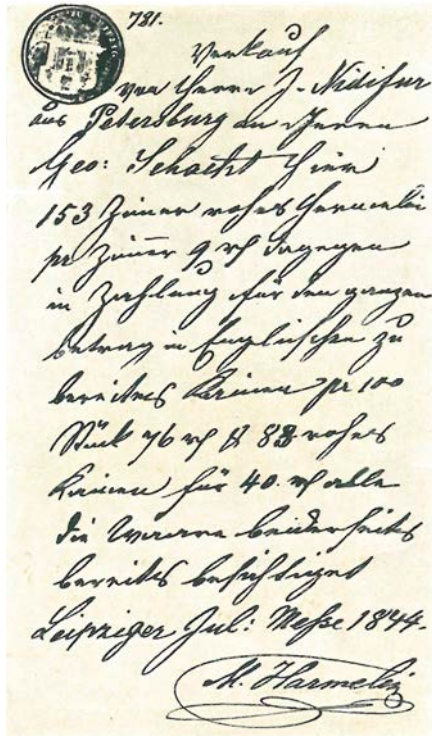 781.
Verkauf
von Herrn J. Nidisur
aus Petersburg an Herrn
Geo: Schacht hier
153 Zimer rohes Hermelin
pr Zimer 9 rℓ dagegen
in Zahlung für den ganzen
betrag in Englischen zu
bereitets Kaninen pr 100
Stück 76 rℓ & 83 rohes
Kaninen für 40. rℓ alle
die Waare beiderseits
bereits besichtiget
Leipziger Jul: Messe 1844.
M. Harmelin